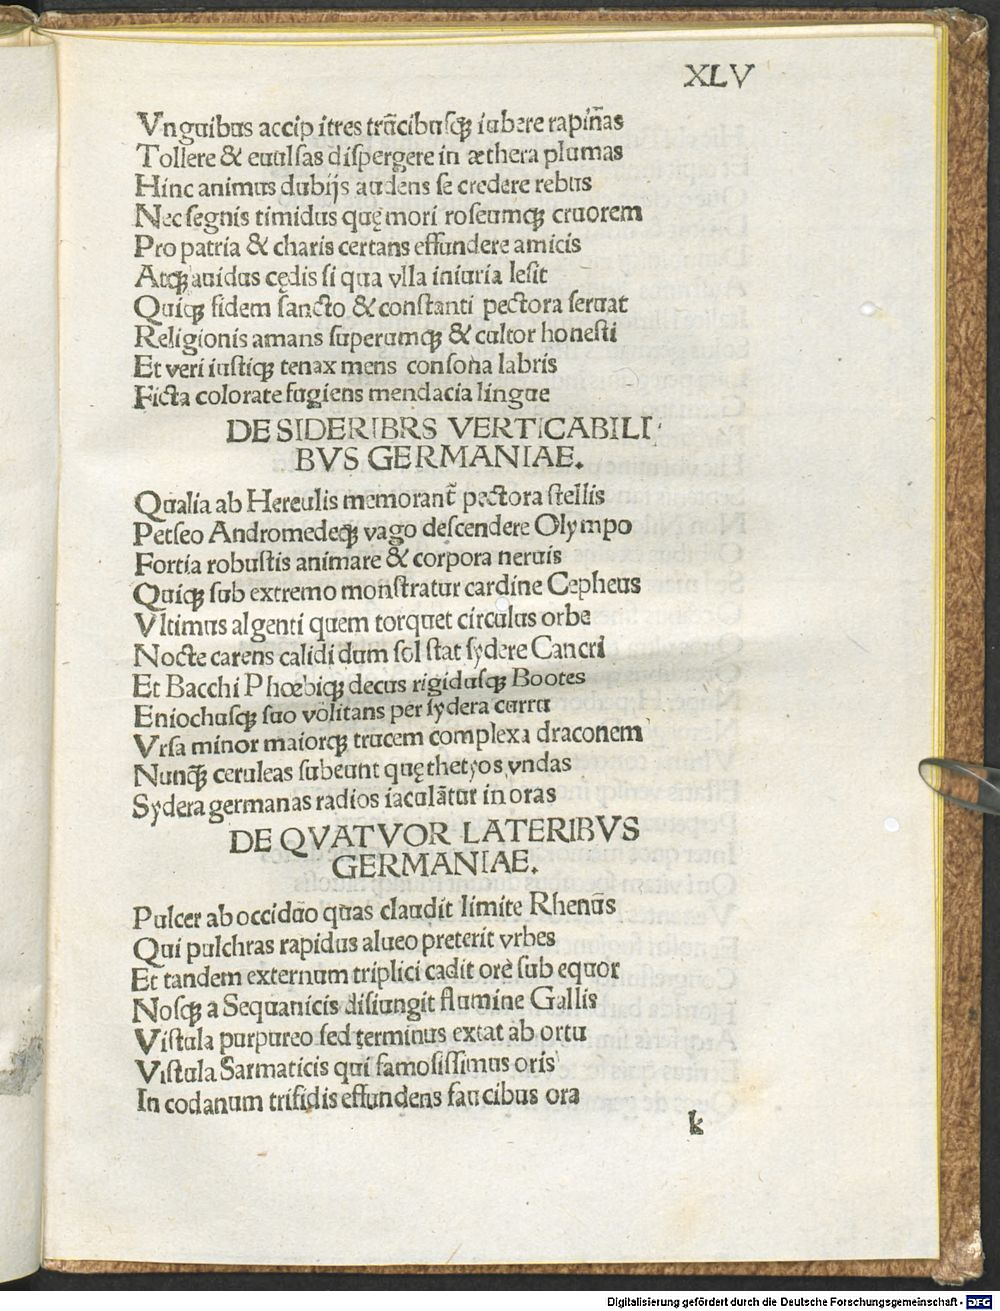 XLV
Vnguibus accipitres trūcibusqꝫ iubere rapin̄as
Tollere & euulsas dispergere in æthera plumas
Hinc animus dubijs audens se credere rebus
Nec segnis timidus quę mori roseumqꝫ cruorem
Pro patria & charis certans effundere amicis
Atqꝫ auidus cędis si qua vlla iniuria lesit
Quiqꝫ fidem sancto & constanti pectora seruat
Religionis amans superumqꝫ & cultor honesti
Et veri iustiqꝫ tenax mens consona labris
Ficta colorate fugiens mendacia lingue
DE SIDERIBRS VERTICABILI
BVS GERMANIAE.
Qualia ab Hereulis memorant̃ pectora stellis
Petseo Andromedeqꝫ vago descendere Olympo
Fortia robustis animare & corpora neruis
Quiqꝫ sub extremo monstratur cardine Cepheus
Vltimus algenti quem torquet circulus orbe
Nocte carens calidi dum sol stat sydere Cancri
Et Bacchi Phœbiqꝫ decus rigidusqꝫ Bootes
Eniochusqꝫ suo volitans per sydera curru
Vrsa minor maiorqꝫ trucem complexa draconem
Nunqꝫ̃ ceruleas subeunt quę thetyos vndas
Sydera germanas radios iaculãtur in oras
DE QVATVOR LATERIBVS
GERMANIAE.
Pulcer ab occiduo quas claudit limite Rhenus
Qui pulchras rapidus alueo preterit vrbes
Et tandem externum triplici cadit ore sub equor
Nosqꝫ a Sequanicis disiungit flumine Gallis
Vistula purpureo sed terminus extat ab ortu
Vistula Sarmaticis qui famosissimus oris
In codanum trifidis effundens faucibus ora
k
Digitalisierung gefördert durch die Deutsche Forschungsgemeinschaft - DFG